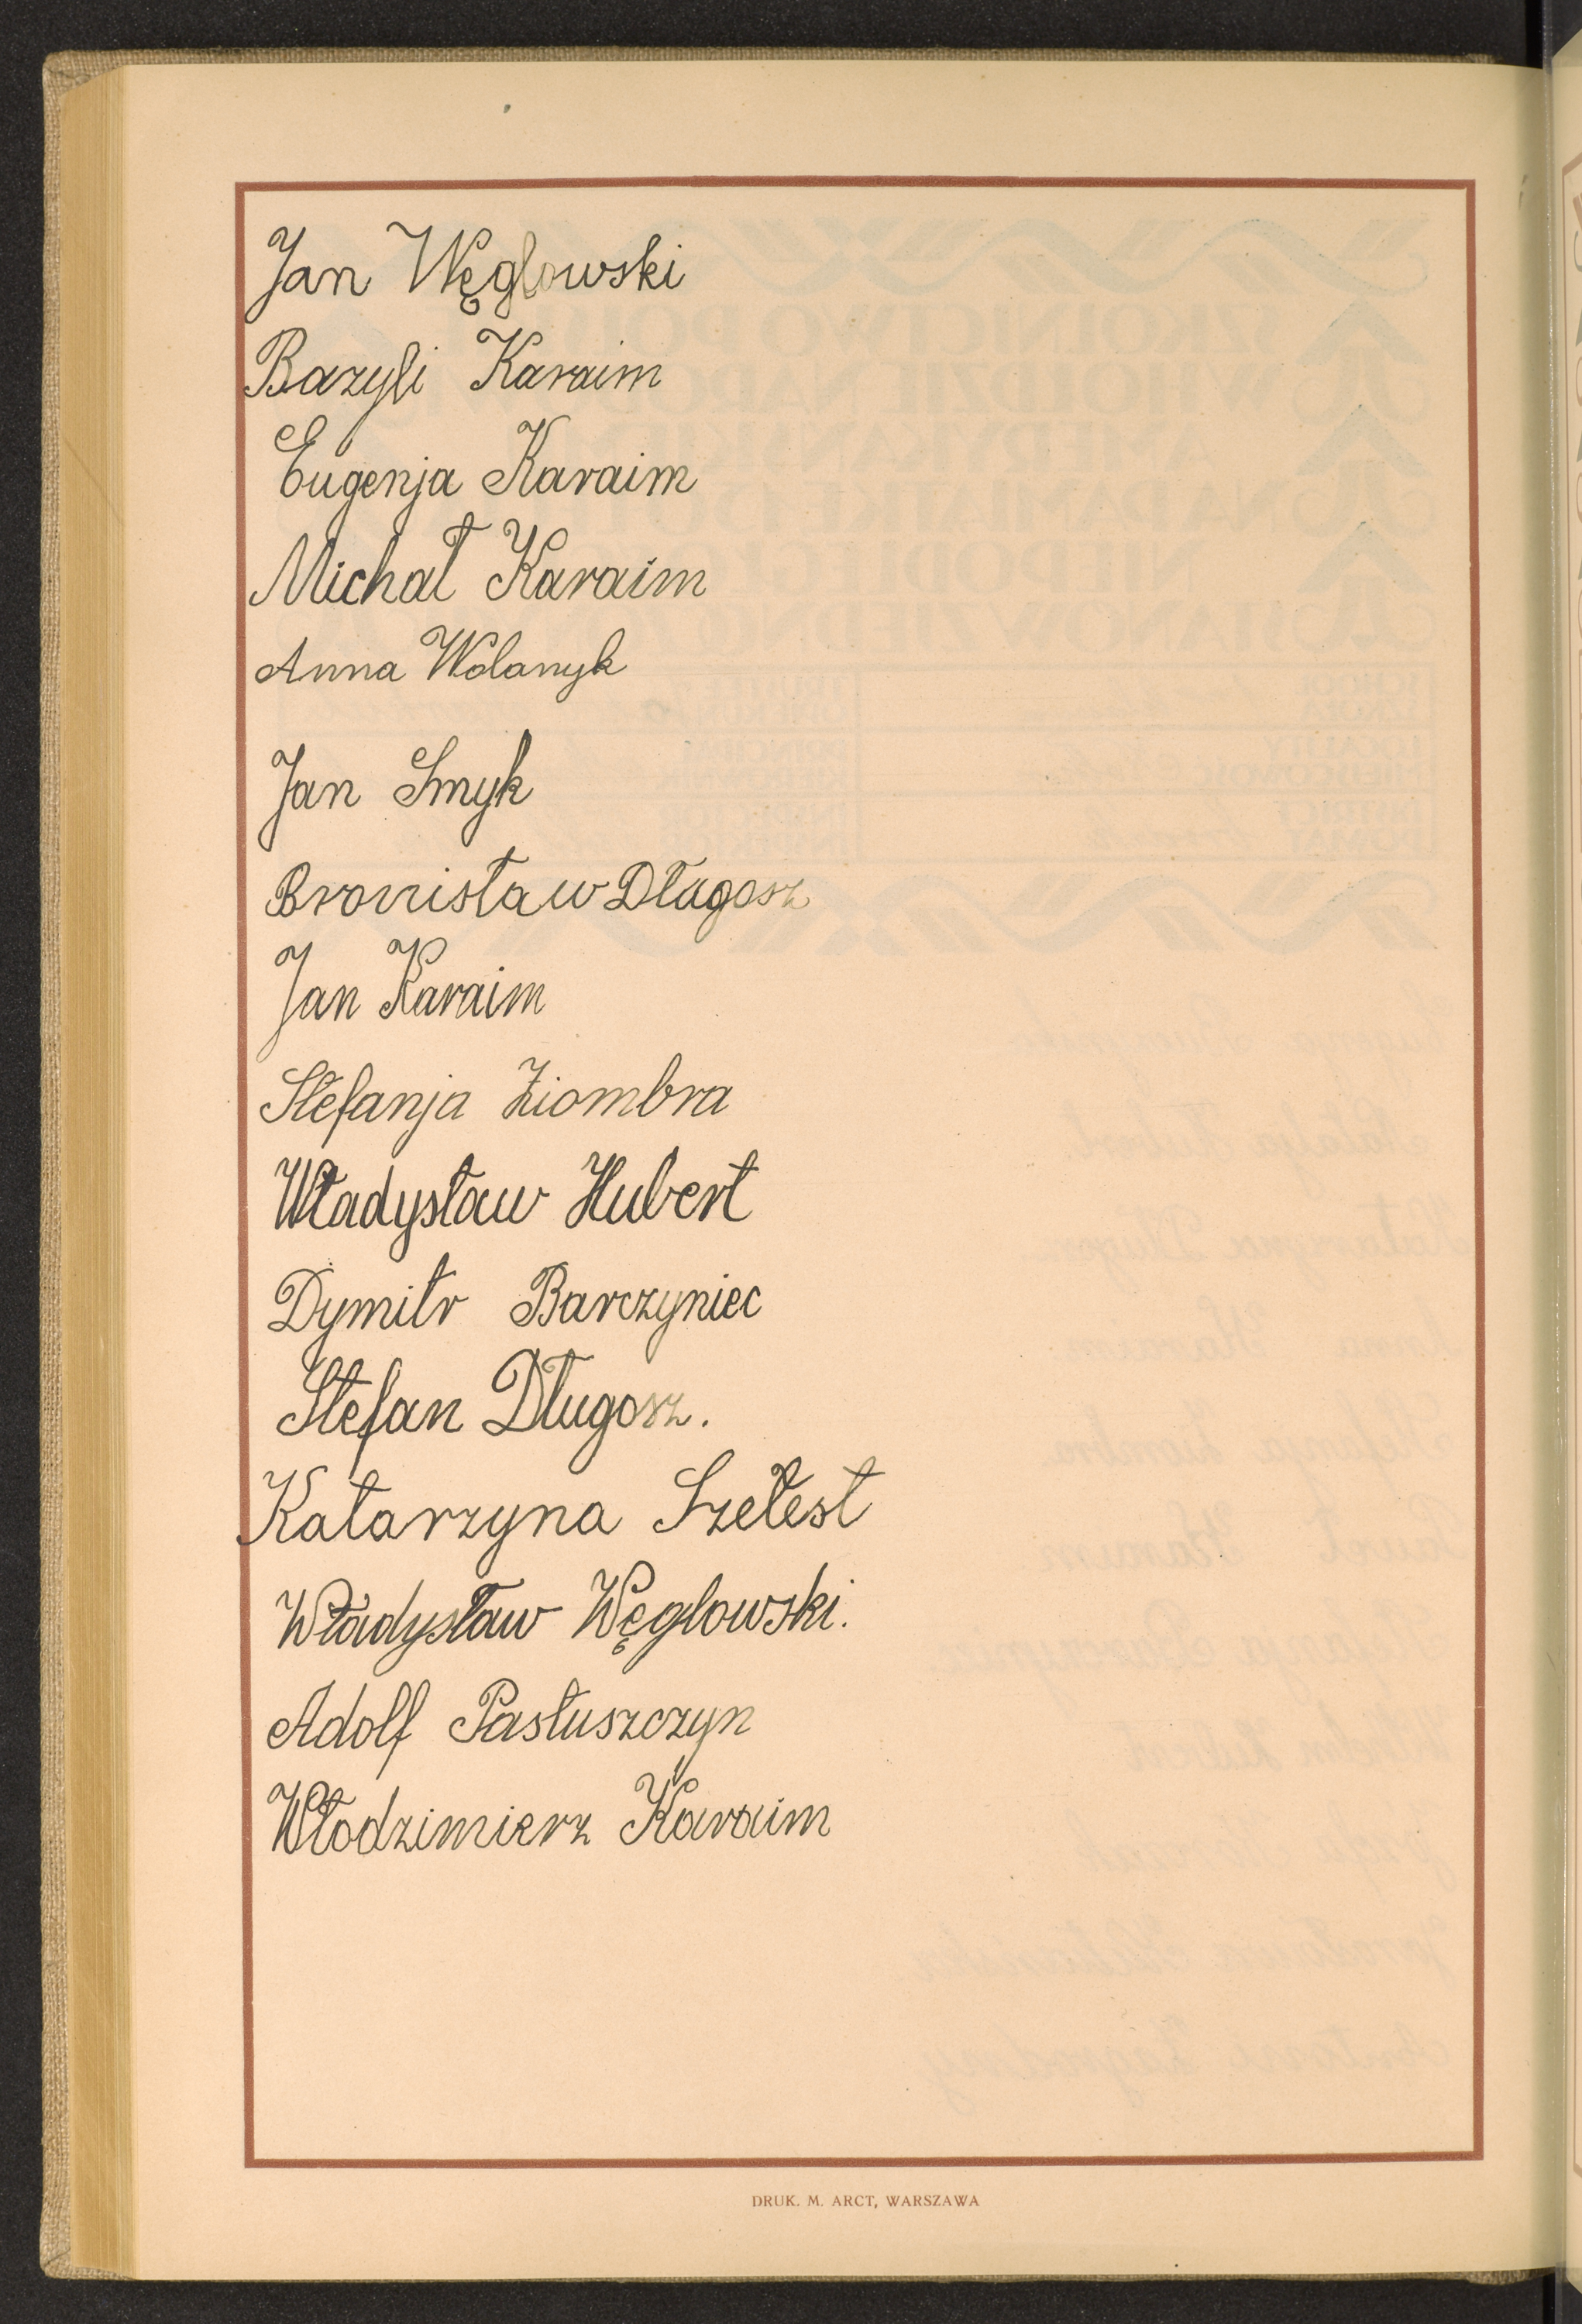 Jan Węglowski
Bazyli Karaim
Eugenja Karaim
Michał Karaim
Anna Wolanyk
Jan Smyk
Bronisław Długosz
Jan Karaim
Stefanja Ziombra
Władysław Hubert
Dymitr Barczyniec
Stefan Długosz.
Katarzyna Szełest
Władysław Węglowski.
Adolf Pastuszczyn
Włodzimierz Karaim
DRUK. M. ARCT, WARSZAWA